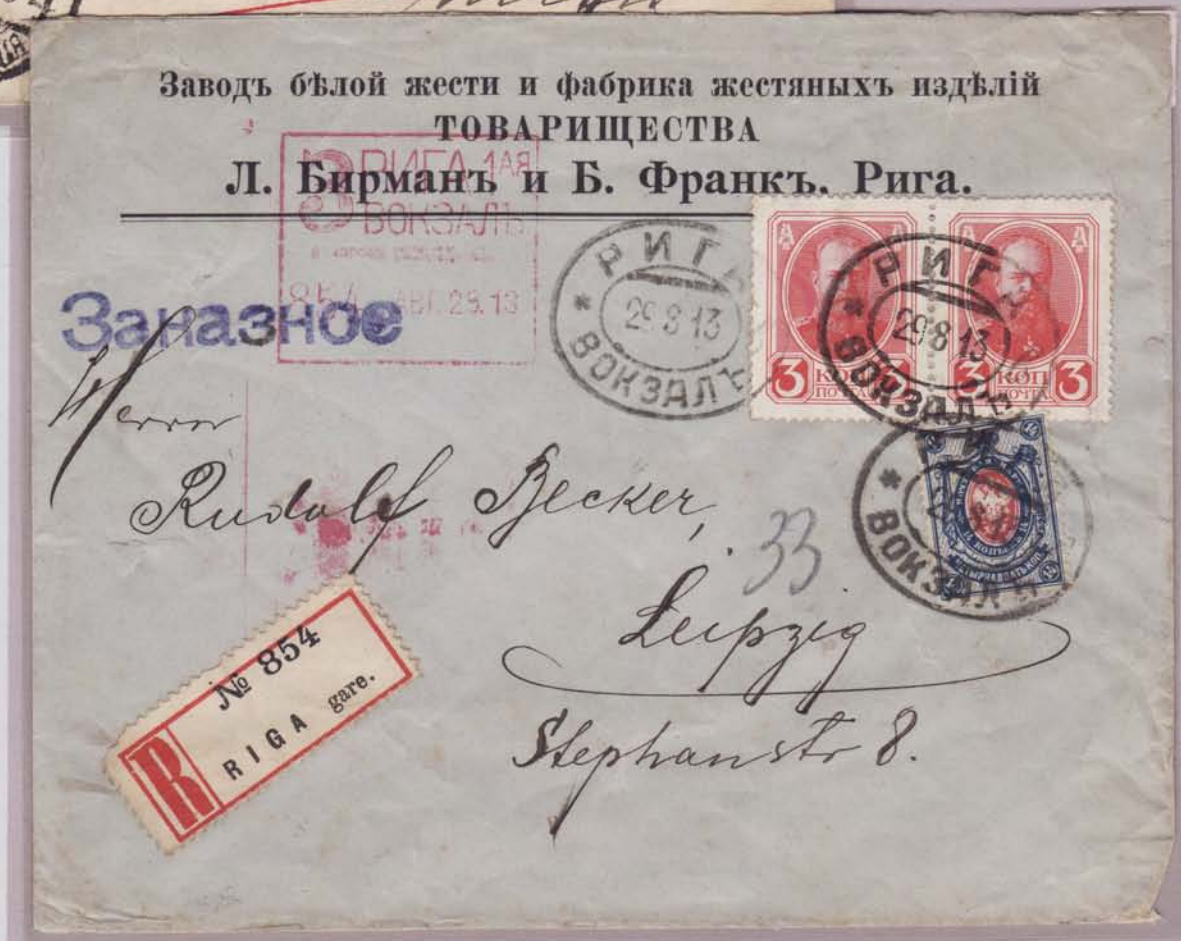 Заводъ бѣлой жести и фабрика жестяныхъ издѣлій
ТОВАРИЩЕСТВА
Л. Бирманъ и Б. Франкъ. Рига.
З РИГА 1АЯ
ВОКЗАЛЪ
854 АВГ. 29.13
Заказное
РИГА
29 8 13
* ВОКЗАЛЪ
3 КОП 3
ПОЧТА
РИГА
29 8 13
* ВОКЗАЛЪ
3 КОП 3
ПОЧТА
14
14 КОПѢЕКЪ 14
ЧЕТЫРНАДЦАТЬ КОП.
* ВОКЗАЛЪ
Herrn
Rudolf Becker,
33
Leipzig
Stephanstr 8.
R
№ 854
RIGA gare.